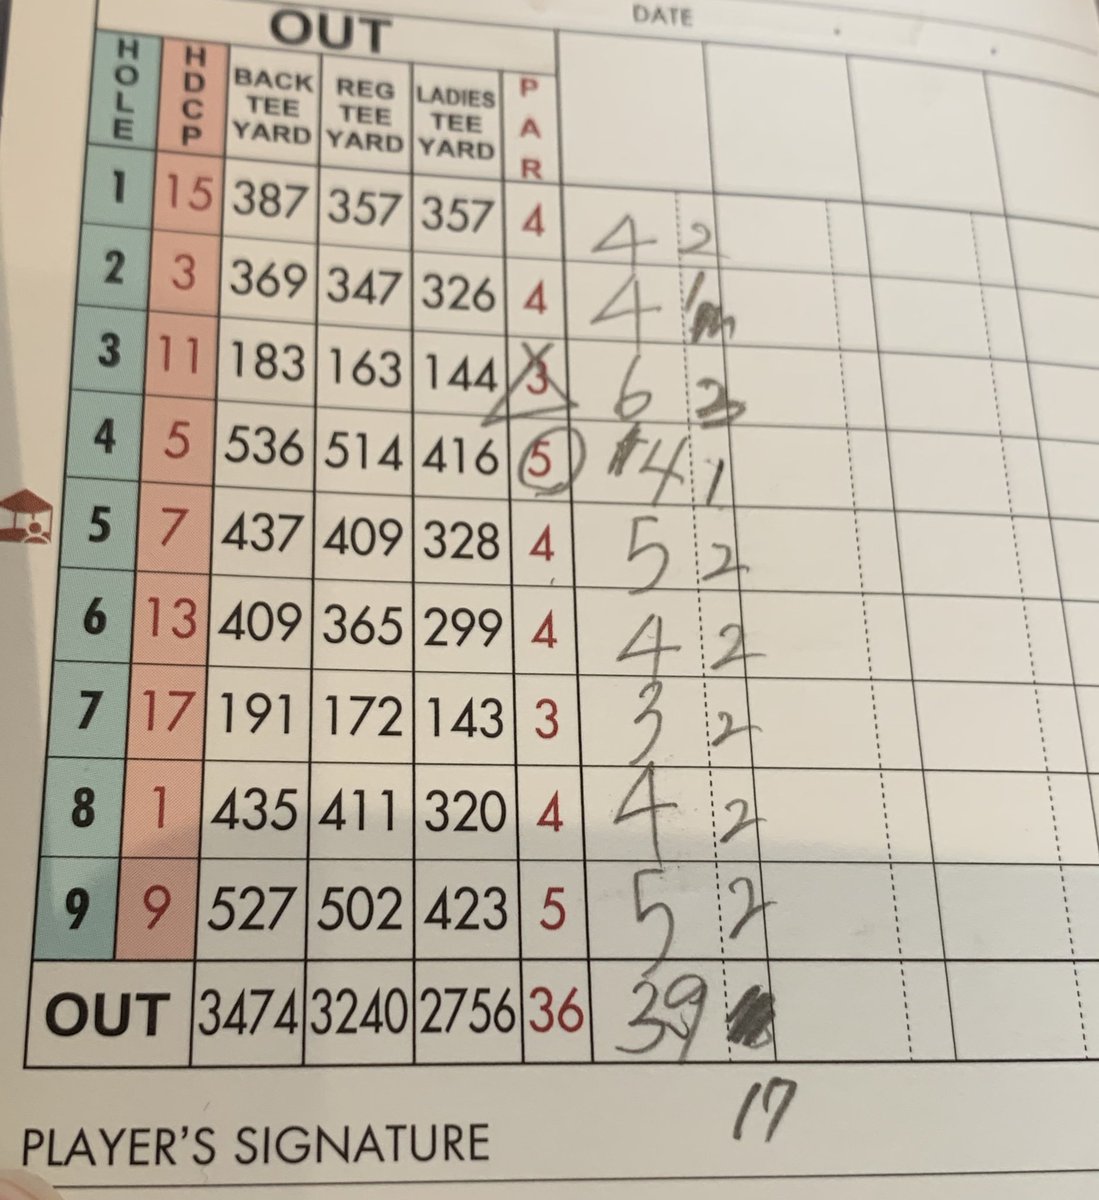 OUT DATE
HOLE HDCP BACK TEE YARD REG TEE YARD LADIES TEE YARD PAR
1 15 387 357 357 4 4 2
2 3 369 347 326 4 4 1
3 11 183 163 144 3 6
4 5 536 514 416 5 4 1
5 7 437 409 328 4 5 2
6 13 409 365 299 4 4 2
7 17 191 172 143 3 3 2
8 1 435 411 320 4 4 2
9 9 527 502 423 5 5 2
OUT 3474 3240 2756 36 39
17
PLAYER'S SIGNATURE